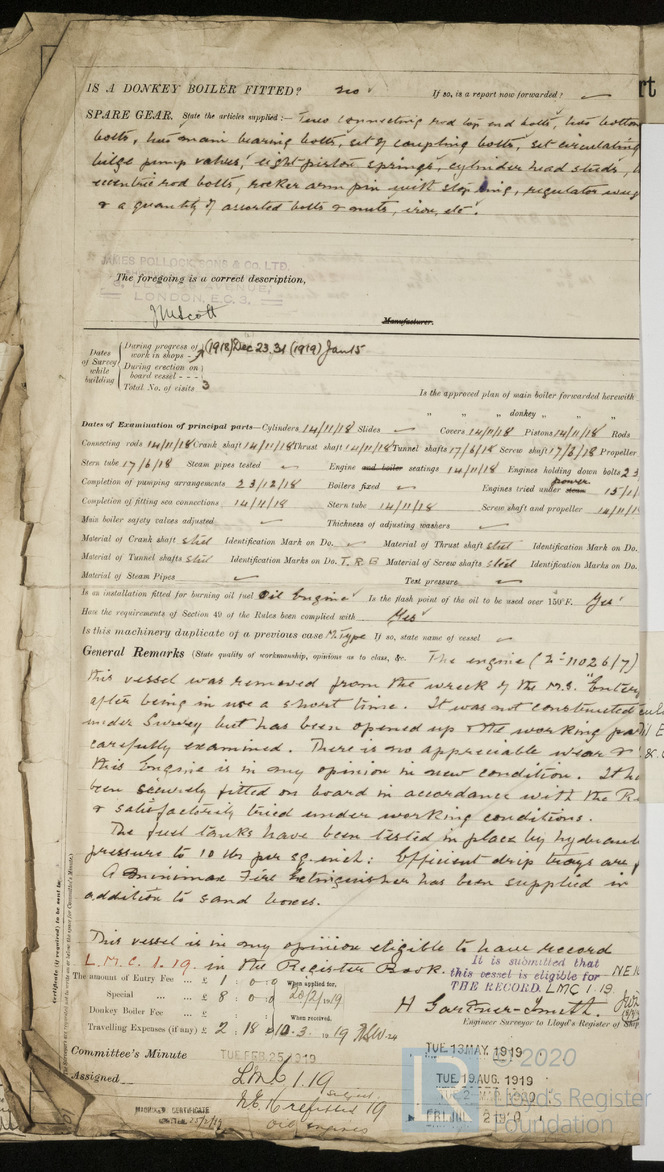 IS A DONKEY BOILER FITTED? no If so, is a report now forwarded? ✓
SPARE GEAR. State the articles supplied:— Two connecting rod top end bolts, two bottom
bolts, two main bearing bolts, set of coupling bolts, set circulating
bilge pump valves, eight piston springs, cylinder head studs,
eccentric rod bolts, rocker arm pin with stop ring, regulator
& a quantity of assorted bolts & nuts, iron, etc.
JAMES POLLOCK SONS & CO. LTD.
The foregoing is a correct description,
AVENUE,
LONDON, E.C. 3.
J M Scott
Manufacturer.
Dates of Survey while building
During progress of work in shops - - (1918) Dec 23, 31 (1919) Jan 15
During erection on board vessel - - -
Total No. of visits 3
Is the approved plan of main boiler forwarded herewith
" " " donkey " " "
Dates of Examination of principal parts—Cylinders 14/11/18 Slides ✓ Covers 14/11/18 Pistons 14/11/18 Rods
Connecting rods 14/11/18 Crank shaft 14/11/18 Thrust shaft 14/11/18 Tunnel shafts 17/6/18 Screw shaft 17/6/18 Propeller
Stern tube 17/6/18 Steam pipes tested ✓ Engine and boiler seatings 14/11/18 Engines holding down bolts 23
Completion of pumping arrangements 23/12/18 Boilers fixed ✓ Engines tried under steam power 15/1/
Completion of fitting sea connections 14/11/18 Stern tube 14/11/18 Screw shaft and propeller 14/11/1
Main boiler safety valves adjusted ✓ Thickness of adjusting washers ✓
Material of Crank shaft steel Identification Mark on Do. ✓ Material of Thrust shaft steel Identification Mark on Do.
Material of Tunnel shafts steel Identification Marks on Do. T.R.B Material of Screw shafts steel Identification Marks on Do.
Material of Steam Pipes ✓ Test pressure ✓
Is an installation fitted for burning oil fuel Oil Engine Is the flash point of the oil to be used over 150°F. Yes
Have the requirements of Section 49 of the Rules been complied with Yes
Is this machinery duplicate of a previous case M.Type If so, state name of vessel ✓
General Remarks (State quality of workmanship, opinions as to class, &c. The engine (No 11026/7)
this vessel was removed from the wreck of the M.S. "Enter
after being in use a short time. It was not constructed
under Survey but has been opened up & the working par
carefully examined. There is no appreciable wear &
this Engine is in my opinion in new condition. It h
been securely fitted on board in accordance with the R
& satisfactorily tried under working conditions.
The fuel tanks have been tested in place by hydraul
pressure to 10 lbs per sq. inch: Efficient drip trays are
A Minimax Fire Extinguisher has been supplied in
addition to sand boxes.
This vessel is in my opinion eligible to have record
L.M.C. 1.19. in the Register Book.
It is submitted that
this vessel is eligible for
THE RECORD. LMC 1.19
The amount of Entry Fee ... £ 1 : 0 : 0 When applied for,
Special ... £ 8 : 0 : 0 20/2/1919
Donkey Boiler Fee ... £ When received.
Travelling Expenses (if any) £ 2 : 18 : 10.3.1919
H Gardner-Smith.
Engineer Surveyor to Lloyd's Register of Ship
Committee's Minute TUE FEB 25 1919
TUE. 13 MAY. 1919
Assigned LMC 1.19
TUE. 19 AUG. 1919
FRI. JUL. 2 1920
MACHINERY CERTIFICATE
WRITTEN 25/2/19
oil engines
© 2020
LR
Lloyd's Register
Foundation
Certificate (if required) to be sent to